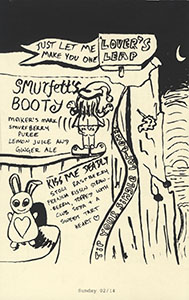 JUST LET ME
MAKE YOU ONE
LOVER'S
LEAP
SMURFETT'S
BOOTY
MAKER'S MARK
SMURFBERRY
PUREE
LEMON JUICE AND
GINGER ALE
KISS ME DEADLY
STOLI RASPBERRY
BERRY, TOPPED WITH
CLUB SODA + A
SWEET TART
HEART
TIP YOUR SINGLE
Sunday 02/14